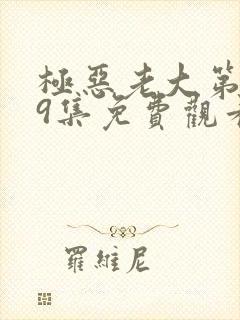 極惡老大第
9集免費觀看
羅維尼